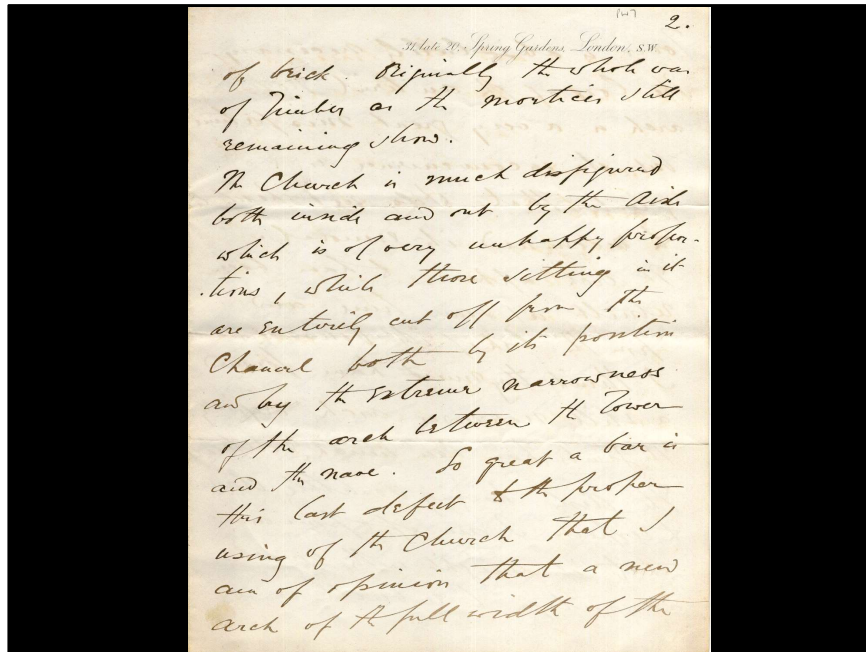 2.
31, late 20, Spring Gardens, London, S.W.
of brick. Originally the whole was
of Timber as the mortices still
remaining show.
The Church is much disfigured
both inside and out by the Aisle
which is of very unhappy propor-
-tions, while those sitting in it
are entirely cut off from the
Chancel both by its position
and by the extreme narrowness
of the arch between the Tower
and the nave. So great a bar is
this last defect to the proper
using of the Church that I
am of opinion that a new
arch of the full width of the